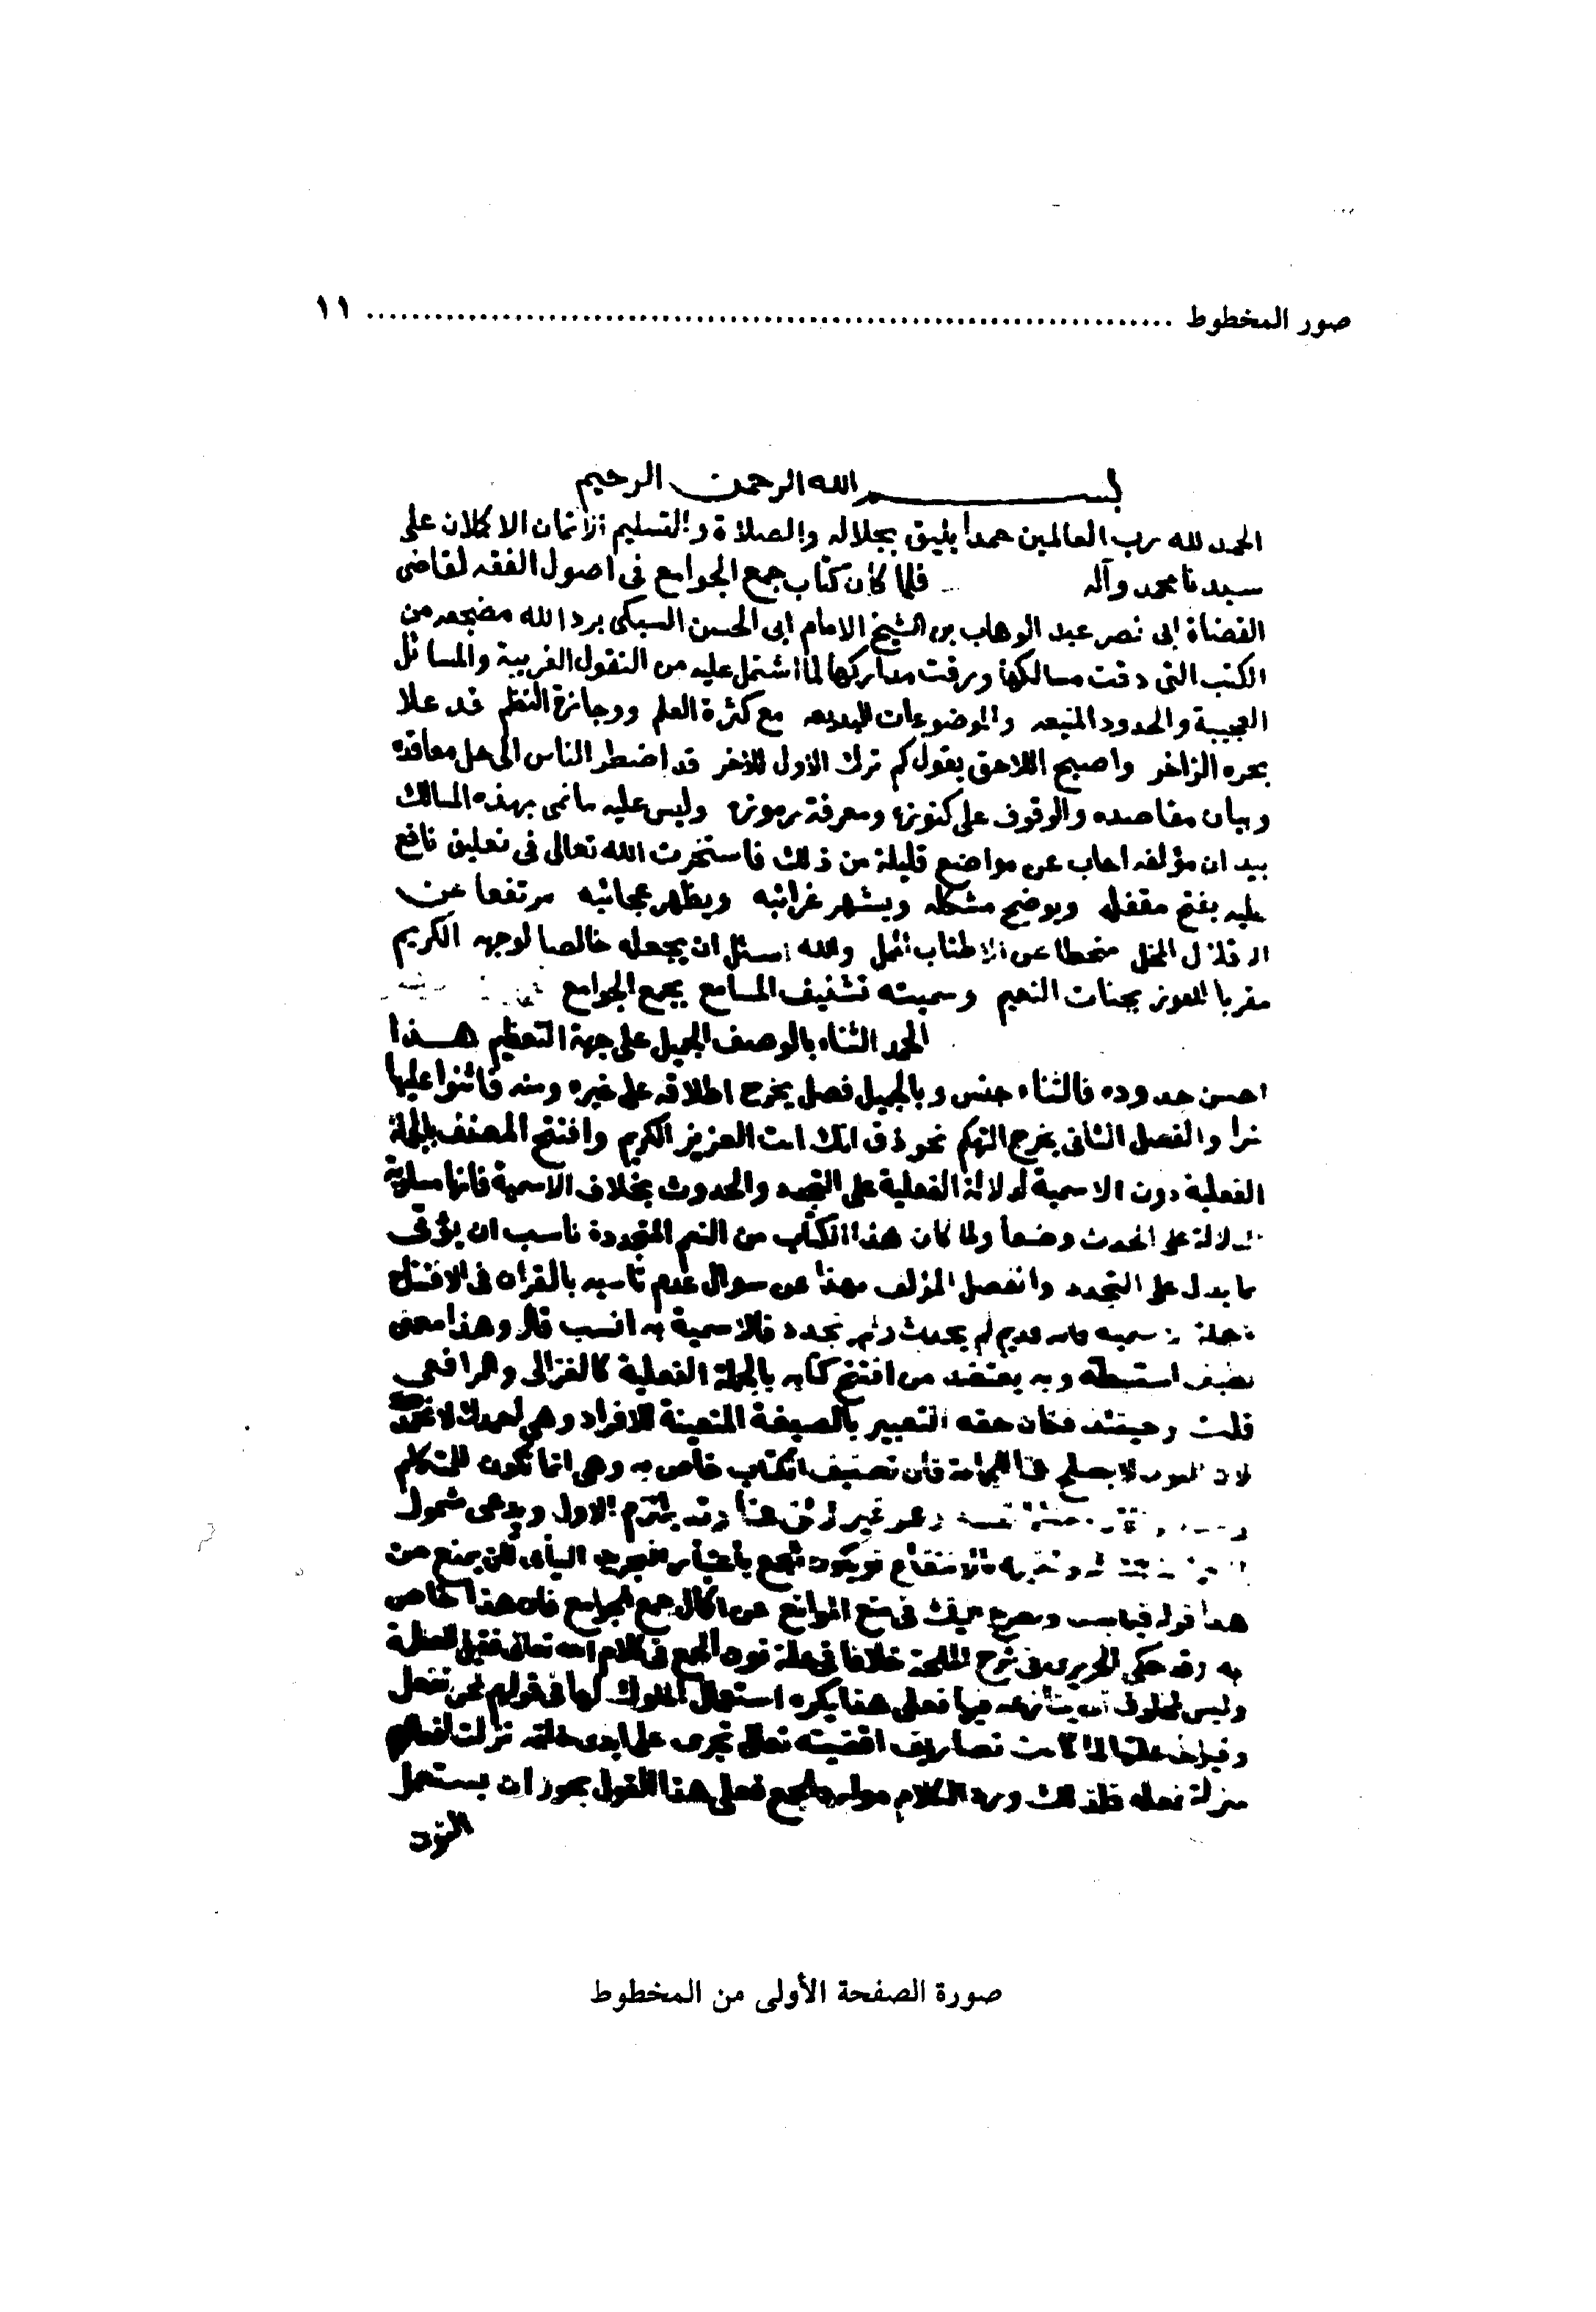 صور المخطوط ........ ١١
بسم الله الرحمن الرحيم
الحمد لله رب العالمين حمدا يليق بجلاله والصلاة والتسليم الأتمان الاكملان على
سيدنا محمد وآله فلما كان كتاب جمع الجوامع في اصول الفقه لقاضي
القضاة ابى نصر عبد الوهاب بن الشيخ الامام ابى الحسن السبكى برد الله مضجعه من
الكتب التي دقت مسالكها ورقت مداركها لما اشتمل عليه من النقول الغريبة والمسائل
العجيبة والحدود المنيعه والموضوعات البديعه مع كثرة العلم ووجازة النظم قد علا
بحره الزاخر واصبح اللاحق يقول كم ترك الاول للآخر قد اضطر الناس الى حل معاقده
وبيان مقاصده والوقوف على كنوزه ومعرفة رموزه وليس عليه مانمى بهذه المسالك
بيد ان مؤلفه اجاب عن مواضع قليلة من ذلك فاستخرت الله تعالى في تعليق نافع
عليه يفتح مقفله ويوضح مشكله ويشهر غرائبه ويظهر عجائبه مرتفعا عن
المخل منحطا عن الاطناب الممل والله اسئل ان يجعله خالصا لوجهه الكريم
مقربا للفوز بجنات النعيم وسميته تشنيف المسامع بجمع الجوامع
الحمد الثناء بالوصف الجميل على جهة التعظيم هذا
احسن حدوده فالثناء جنس وبالجميل فصل يخرج اطلاقه على غيره ومنه فاثنوا عليها
شرا والفصل الثانى يخرج التهكم نحو ذق انك انت العزيز الكريم وافتتح المصنف بالجملة
الفعلية دون الاسمية لدلالة الفعلية على التجدد والحدوث بخلاف الاسمية فانها مسلوبة
الدلالة على الحدث وضعا ولما كان هذا الكتاب من النعم المتجددة ناسب ان يؤتى
بما يدل على التجدد وانفصل المؤلف بهذا عن سوال عدم تاسيه بالقران في الافتتاح
بالجملة الاسمية فانه قديم لم يحدث ولم يتجدد فالاسمية به انسب قال وهذا معنى
لطيف استنبطه وبه يعتضد من افتتح كتابه بالجملة الفعلية كالغزالى والرافعى
قلت وحينئذ فكان حقه التعبير بالصيغة المتعينة للافراد وهي احمدك لا نحمدك
لان النون لا يصلح هنا للجماعة فان تصنيف الكتاب خاص به وهي انما تكون للمتكلم
وهو غير لائق هنا وقد يلتزم الاول ويدعى شمول
بالانتفاع فيكون الجمع باعتبار لكن يمنع من
هذا قوله فيما بعد ونضرع اليك في منع الموانع عن اكمال جمع الجوامع فان هذا خاص
به وقد حكى الحريرى في شرح الملحة خلافا في علة نون الجمع في كلام الله تعالى فقيل للعظمة
وليس لمخلوق ان ينازعه فيها فعلى هذا يكره استعمال الملوك لها في قولهم نحن نفعل
وقيل في علتها لما كانت تصاريف اقضيته تعالى تجرى على ايدى خلقه نزلت افعالهم
منزلة فعله فلذلك ورد الكلام موارد الجمع فعلى هذا القول يجوز ان يستعمل
النون
صورة الصفحة الأولى من المخطوط